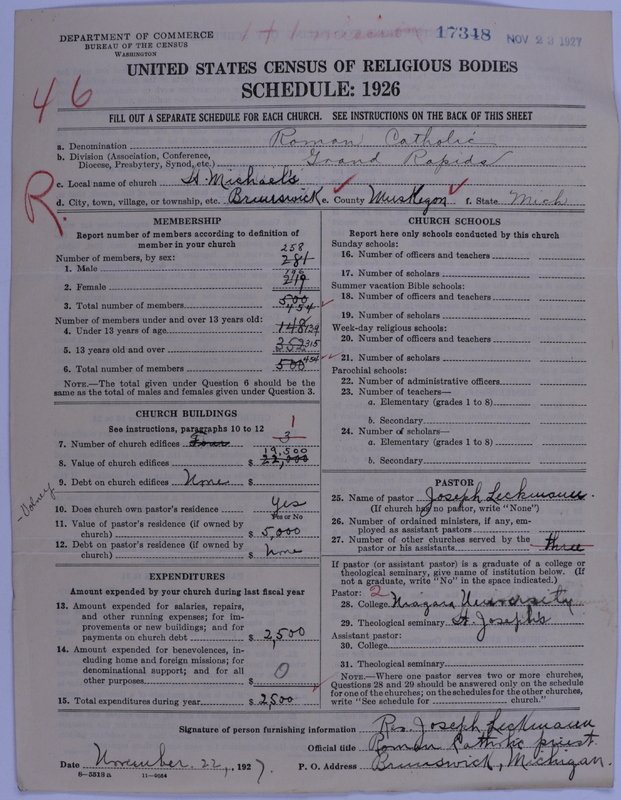 DEPARTMENT OF COMMERCE
BUREAU OF THE CENSUS
WASHINGTON
17348 NOV 23 1927
UNITED STATES CENSUS OF RELIGIOUS BODIES
SCHEDULE: 1926
46
FILL OUT A SEPARATE SCHEDULE FOR EACH CHURCH. SEE INSTRUCTIONS ON THE BACK OF THIS SHEET
a. Denomination Roman Catholic
b. Division (Association, Conference, Diocese, Presbytery, Synod, etc.) Grand Rapids
c. Local name of church St. Michael's
d. City, town, village, or township, etc. Brunswick e. County Muskegon f. State Mich
R.
MEMBERSHIP
Report number of members according to definition of
member in your church
Number of members, by sex:
258
1. Male 281
196
2. Female 219
3. Total number of members 500
454
Number of members under and over 13 years old:
4. Under 13 years of age 148 139
5. 13 years old and over 352 315
6. Total number of members 500 454
NOTE.—The total given under Question 6 should be
same as the total of males and females given under Question 3.
CHURCH BUILDINGS
See instructions, paragraphs 10 to 12
1
7. Number of church edifices Four 3
19,500
8. Value of church edifices $ 22,000
9. Debt on church edifices None $
10. Does church own pastor's residence? Yes
Yes or No
11. Value of pastor's residence (if owned by
church) $ 5,000
12. Debt on pastor's residence (if owned by
church) $ None
EXPENDITURES
Amount expended by your church during last fiscal year
13. Amount expended for salaries, repairs,
and other running expenses; for im-
provements or new buildings; and for
payments on church debt $ 2,500
14. Amount expended for benevolences, in-
cluding home and foreign missions; for
denominational support; and for all
other purposes $ 0
15. Total expenditures during year $ 2,500
CHURCH SCHOOLS
Report here only schools conducted by this church
Sunday schools:
16. Number of officers and teachers
17. Number of scholars
Summer vacation Bible schools:
18. Number of officers and teachers
19. Number of scholars
Week-day religious schools:
20. Number of officers and teachers
21. Number of scholars
Parochial schools:
22. Number of administrative officers
23. Number of teachers—
a. Elementary (grades 1 to 8)
b. Secondary
24. Number of scholars—
a. Elementary (grades 1 to 8)
b. Secondary
PASTOR
25. Name of pastor Joseph Leckmann.
(If church has no pastor, write "None")
26. Number of ordained ministers, if any, em-
ployed as assistant pastors
27. Number of other churches served by the
pastor or his assistants three
If pastor (or assistant pastor) is a graduate of a college or
theological seminary, give name of institution below. (If
not a graduate, write "No" in the space indicated.)
Pastor: 2
28. College Niagara University
29. Theological seminary St. Joseph's
Assistant pastor:
30. College
31. Theological seminary
NOTE.—Where one pastor serves two or more churches,
Questions 28 and 29 should be answered only on the schedule
for one of the churches; on the schedules for the other churches,
write "See schedule for church."
Signature of person furnishing information Rev. Joseph Leckmann
Official title Roman Catholic priest.
Date November 22, 1927. P. O. Address Brunswick, Michigan.
8-5513a 11-9054